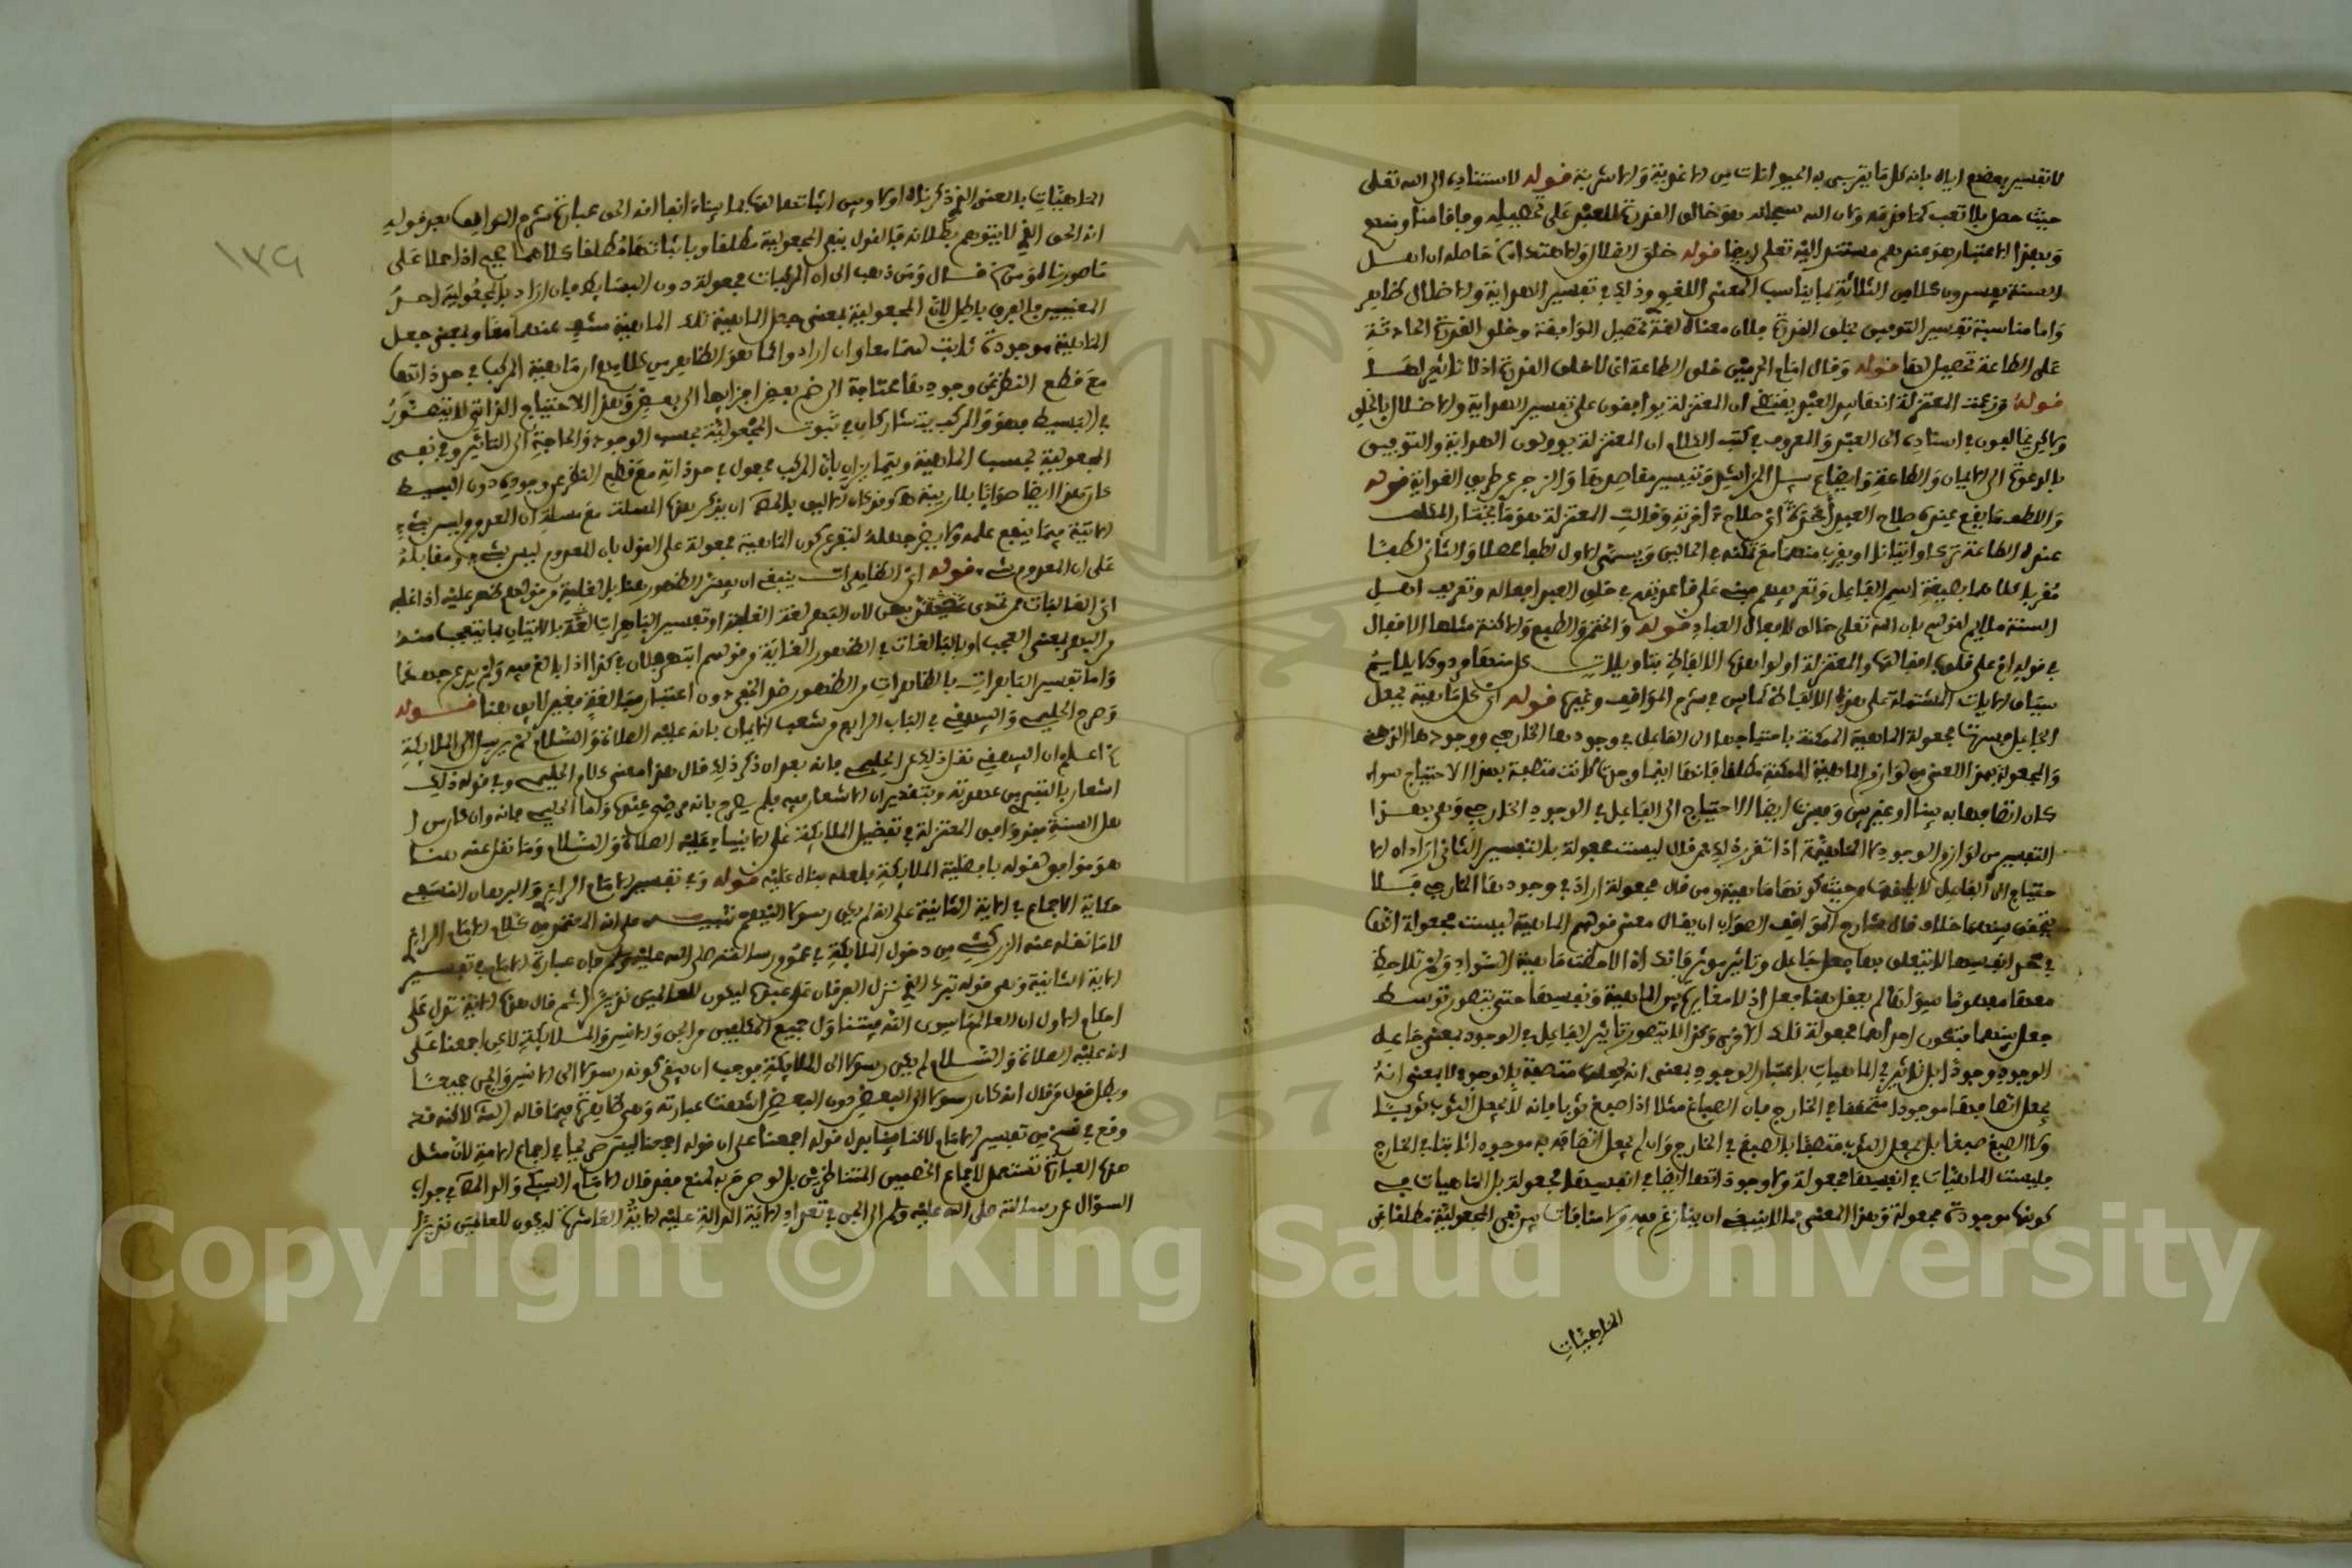 لا تفسير بعضهم اياه بانه كل ما يتربى به الحيوانات من الاغذية والاشربة قوله لاستناده الى الله تعلى
وبهذا الاعتبار هو عندهم مستند اليه تعلى ايضا قوله خلق الضلال والاهتداء حاصله ان اهل
السنة يفسرون كلا من الثلاثة بما يناسب المعنى اللغوي وذلك في تفسير الهداية والاضلال ظاهر
واما مناسبة تفسير التوفيق بخلق القدرة فلان معناه لغة تحصيل الموافقة وخلق القدرة الحادثة
على الطاعة تحصيل لها قوله وقال امام الحرمين خلق الطاعة اي لا خلق القدرة اذ لا تاثير لها
قوله وزعمت المعتزلة انها بيد العبد يقتضي ان المعتزلة يوافقون على تفسير الهداية والاضلال بالخلق
ولاكن يخالفون في اسناده الى العبد والمعروف في كتب الكلام ان المعتزلة يوولون الهداية والتوفيق
بالدعوة الى الايمان والطاعة وايضاح سبل المراشد وتيسير مقاصدها والزجر عن طريق الغواية قوله
واللطف ما يقع عنده صلاح العبد أخرة اي صلاح أخرته وقالت المعتزلة هو ما يختار المكلف
عنده الطاعة تركا او اتيانا او يقرب منهما مع تمكنه في الحالين ويسمى الاول لطفا محصلا والثاني لطفا
مقربا كلاهما بصيغة اسم الفاعل وتعريفهم مبني على قاعدتهم في خلق العبد افعاله وتعريف اهل
السنة ملايم لقولهم بان الله تعلى خالق لافعال العباد قوله والختم والطبع والاكنة مثلها الاقفال
في قوله ام على قلوب اقفالها والمعتزلة اولوا هذه الالفاظ بتاويلات كل منها مردود لا يلايم
سياق الايات المشتملة على هذه الالفاظ كما بين في شرح المواقف وغيرها قوله اي كل ماهية بجعل
الجاعل وفسرت مجعولة الماهية الممكنة باحتياجها الى الفاعل في وجودها الخارجي ووجودها الذهني
والمجعولة بهذا المعنى من لوازم الماهية الممكنة مطلقا فانها اينما وجدت كانت متصفة بهذا الاحتياج سواء
كان اتصافها به بينا او غير بين وفسرت ايضا الاحتياج الى الفاعل في الوجود الخارجي وهي بهذا
التفسير من لوازم الوجود لا الماهية اذا تقرر ذلك فمن قال ليست مجعولة بالتفسير الثاني اراد ان الا
حتياج الى الفاعل لا يلحقها من حيث كونها ماهية ومن قال مجعولة اراد في وجودها الخارجي فلا
يتحقق بينهما خلاف قال شارح المواقف الصواب ان يقال معنى قولهم الماهية ليست مجعولة انها
في حد انفسها لا يتعلق بها جعل جاعل وتاثير موثر فانك اذا لاحظت ماهية السواد ولم تلاحظ
معها مفهوما سواها لم يعقل هنا جعل اذ لا مغايرة بين الماهية ونفسها حتى يتصور توسط
جعل بينهما فتكون احداهما مجعولة تلك الاخرى وكذا لا يتصور تاثير الفاعل في الوجود بمعنى جاعل
الوجود وجودا بل تاثيره في الماهيات باعتبار الوجود بمعنى انه يجعلها متصفة بالوجود لا بمعنى انه
يجعل اتصافها موجودا متحققا في الخارج فان الصباغ مثلا اذا صبغ ثوبا فانه لا يجعل الثوب ثوبا
ولا الصبغ صبغا بل يجعل الثوب متصفا بالصبغ في الخارج وان لم يجعل اتصافه به موجودا ثابتا في الخارج
فليست الماهيات في انفسها مجعولة ولا وجوداتها ايضا في انفسها مجعولة بل الماهيات في
كونها موجودة مجعولة وهذا المعنى مما لا ينبغي ان ينازع فيه ولا منافاة بين نفي المجعولية مطلقا عن
الماهيات
١٧٩
الماهيات بالمعنى الذي ذكرناه اولا وبين اثباتها لها بما بيناه انفا انه الحق عبارة شرح المواقف بعد قوله
انه الحق الذي لا يتوهم بطلانه فالقول بنفي المجعولية مطلقا وباثباتها مطلقا كلاهما صحيح اذا حملا على
ما صورناه ومن قال ومن ذهب الى ان المركبات مجعولة دون البسايط فان اراد بالمجعولية احد
المعنيين فالفرق باطل لان المجعولية بمعنى جعل الماهية تلك الماهية منتف عنهما معا وبمعنى جعل
الماهية موجودة ثابت لهما معا وان اراد واكما هو الظاهر من كلامهم ان ماهية المركب في حد ذاتها
مع قطع النظر عن وجودها محتاجة الى ضم بعض اجزايها الى بعض وهذا الاحتياج الذاتي لا يتصور
في البسيط فهو والمركب يتشاركان في ثبوت المجعولية بحسب الوجود والحاجة الى التاثير وفي نفي
المجعولية بحسب الماهية ويتمايزان بان المركب مجعول في حد ذاته مع قطع النظر عن وجوده دون البسيط
كان هذا ايضا صوابا بلا ريبة
على ان المعدوم شيء قوله اي الظاهرات ينبغي ان يفسر الظهور هنا بالغلبة من قولهم ظهر عليه اذا غلبه
واما تفسير الباهرات بالظاهرات من الظهور ضد الخفي دون اعتبار مبالغة فغير لايق هنا قوله
وصرح الحليمي والبيهقي في الباب الرابع من شعب الايمان بانه عليه الصلاة والسلام لم يرسل الى الملايكة
اعلم ان البيهقي نقل ذلك عن الحليمي فانه بعد ان ذكر ذلك قال هذا معنى كلام الحليمي وفي قوله ذلك
اشعار بالتبري من عهدته وبتقدير ان لا اشعار فيه فلم يصرح بانه مرضي عنده واما الحليمي فانه وان كان من ا
هل السنة فقد وافق المعتزلة في تفضيل الملايكة على الانبياء عليهم الصلاة والسلام وما نقل عنه هنا
هو موافق لقوله بافضلية الملايكة فلعله بناه عليه قوله وفي تفسير الامام الرازي والبرهان النسفي
حكاية الاجماع في الاية الثانية على انه لم يكن رسولا اليهم
لا ما نقله عنه الزركشي من دخول الملايكة في عموم رسالته صلى الله عليه وسلم فان عبارة الامام في تفسير
الاية الثانية وهي قوله تبارك الذي نزل الفرقان على عبده ليكون للعالمين نذيرا ثم قال هذه الاية تدل على
احكام الاول ان العالم ما سوى الله فيتناول جميع المكلفين من الجن والانس والملايكة لاكن اجمعنا على
انه عليه الصلاة والسلام لم يكن رسولا الى الملايكة فوجب ان يبقى كونه رسولا الى الانس والجن جميعا
وبطل قول من قال انه كان رسولا الى البعض دون البعض انتهت عبارته
هذه العبارة تستعمل لاجماع الخصمين المتناظرين بل لو صرح به لمنع فقد قال الامام السبكي والد المص في جواب
السوال عن رسالته صلى الله عليه وسلم الى الجن في تعداد الاية الدالة عليه الاية العاشرة ليكون للعالمين نذيرا
Copyright © King Saud University
1957